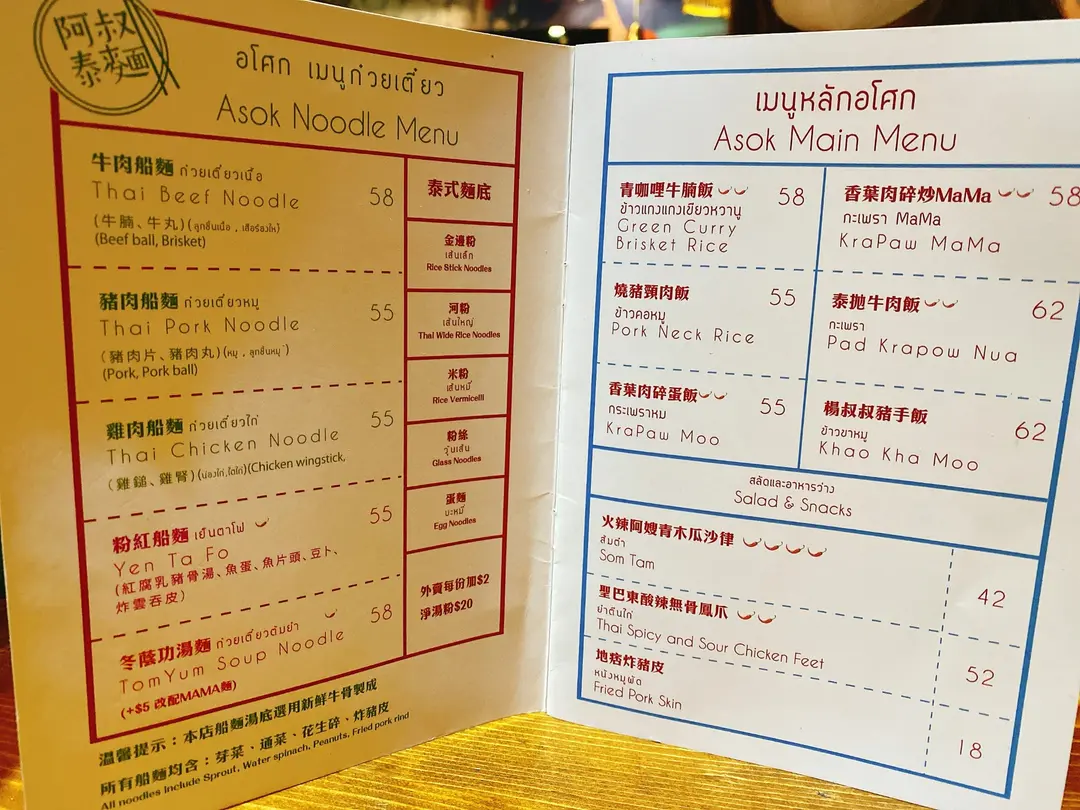 阿叔
泰麵
อโศก เมนูก๋วยเตี๋ยว
Asok Noodle Menu
牛肉船麵 ก๋วยเตี๋ยวเนื้อ
Thai Beef Noodle 58
(牛腩、牛丸) (ลูกชิ้นเนื้อ , เสือร้องไห้)
(Beef ball, Brisket)
豬肉船麵 ก๋วยเตี๋ยวหมู
Thai Pork Noodle 55
(豬肉片、豬肉丸) (หมู , ลูกชิ้นหมู)
(Pork, Pork ball)
雞肉船麵 ก๋วยเตี๋ยวไก่
Thai Chicken Noodle 55
(雞鎚、雞腎) (น่องไก่,ไตไก่) (Chicken wingstick,
粉紅船麵 เย็นตาโฟ 55
Yen Ta Fo
(紅腐乳豬骨湯、魚蛋、魚片頭、豆卜、
炸雲吞皮)
冬蔭功湯麵 ก๋วยเตี๋ยวต้มยำ 58
TomYum Soup Noodle
(+$5 改配MAMA麵)
泰式麵底
金邊粉
เส้นเล็ก
Rice Stick Noodles
河粉
เส้นใหญ่
Thai Wide Rice Noodles
米粉
เส้นหมี่
Rice Vermicelli
粉絲
วุ้นเส้น
Glass Noodles
蛋麵
บะหมี่
Egg Noodles
外賣每份加$2
淨湯粉$20
溫馨提示：本店船麵湯底選用新鮮牛骨製成
所有船麵均含：芽菜、通菜、花生碎、炸豬皮
All noodles include Sprout, Water spinach, Peanuts, Fried pork rind
เมนูหลักอโศก
Asok Main Menu
青咖哩牛腩飯 58
ข้าวแกงแกงเขียวหวานู
Green Curry
Brisket Rice
燒豬頸肉飯 55
ข้าวคอหมู
Pork Neck Rice
香葉肉碎蛋飯 55
กระเพราหม
KraPaw Moo
香葉肉碎炒MaMa 58
กะเพรา MaMa
KraPaw MaMa
泰拋牛肉飯 62
กะเพรา
Pad Krapow Nua
楊叔叔豬手飯 62
ข้าวขาหมู
Khao Kha Moo
สลัดและอาหารว่าง
Salad & Snacks
火辣阿嫂青木瓜沙律
ส้มตำ
Som Tam 42
聖巴東酸辣無骨鳳爪
ยำตีนไก่
Thai Spicy and Sour Chicken Feet 52
地痞炸豬皮
หนังหมูผัด
Fried Pork Skin 18